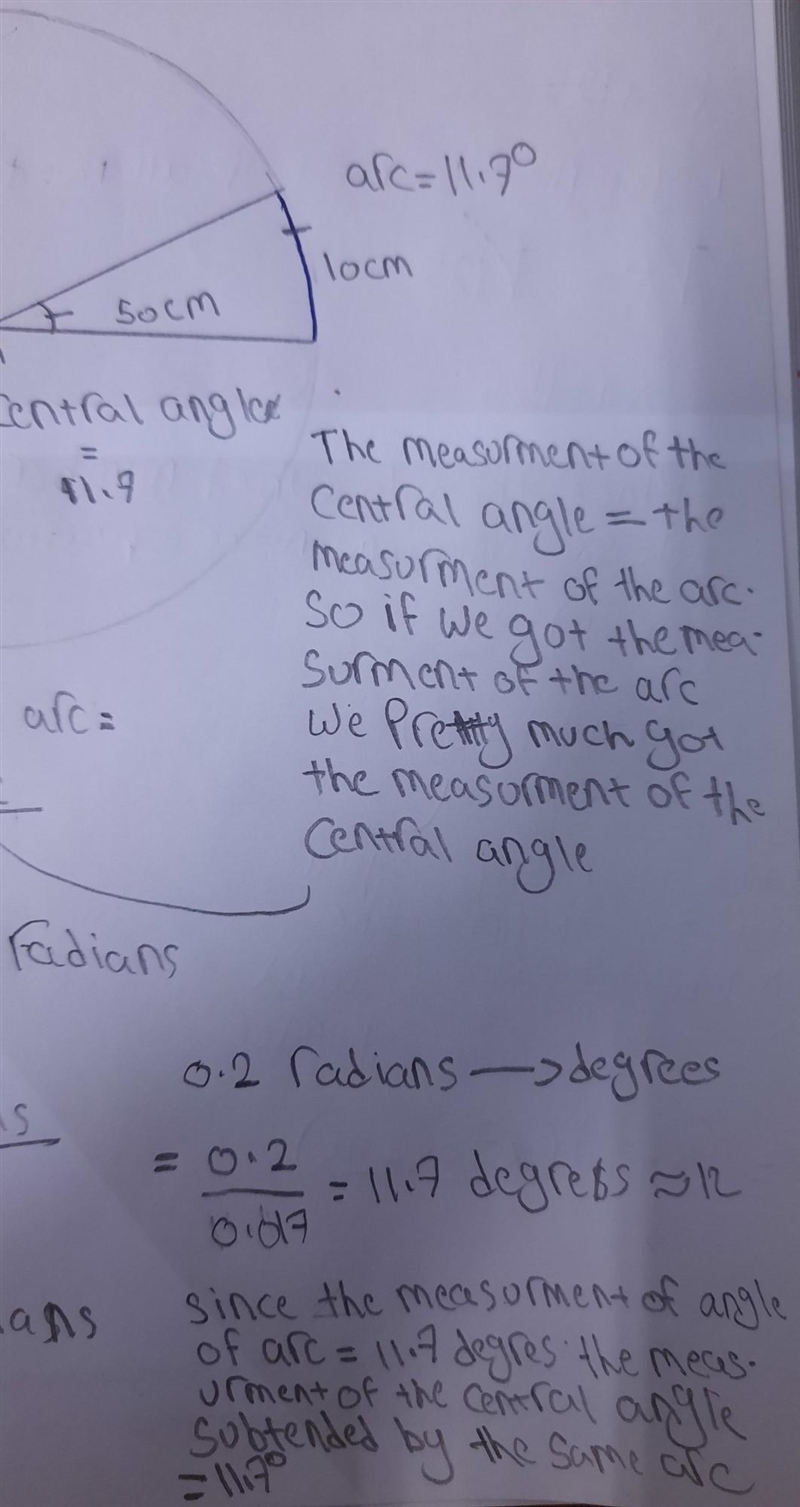 arc = 11.7°
10cm
50cm
Central angle
=
11.9
The measurment of the
central angle = the
measurment of the arc.
So if we got the mea-
surment of the arc
we Pretty much got
the measurment of the
central angle
arc =
radians
0.2 radians → degrees
= 0.2 / 0.017 = 11.7 degrees ≈ 12
since the measurment of angle
of arc = 11.7 degres. the meas-
urment of the central angle
subtended by the same arc
= 11.7°